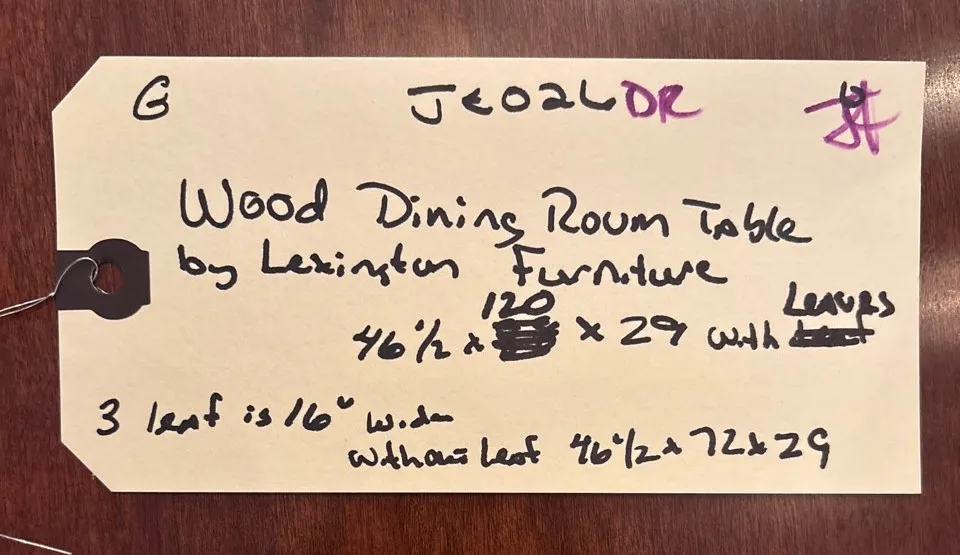 G JE026DR
Wood Dining Room Table
by Lexington Furniture
120 Leaves
46 1/2 x x 29 with
3 leaf is 16" wide
without Leaf 46 1/2 x 72 x 29